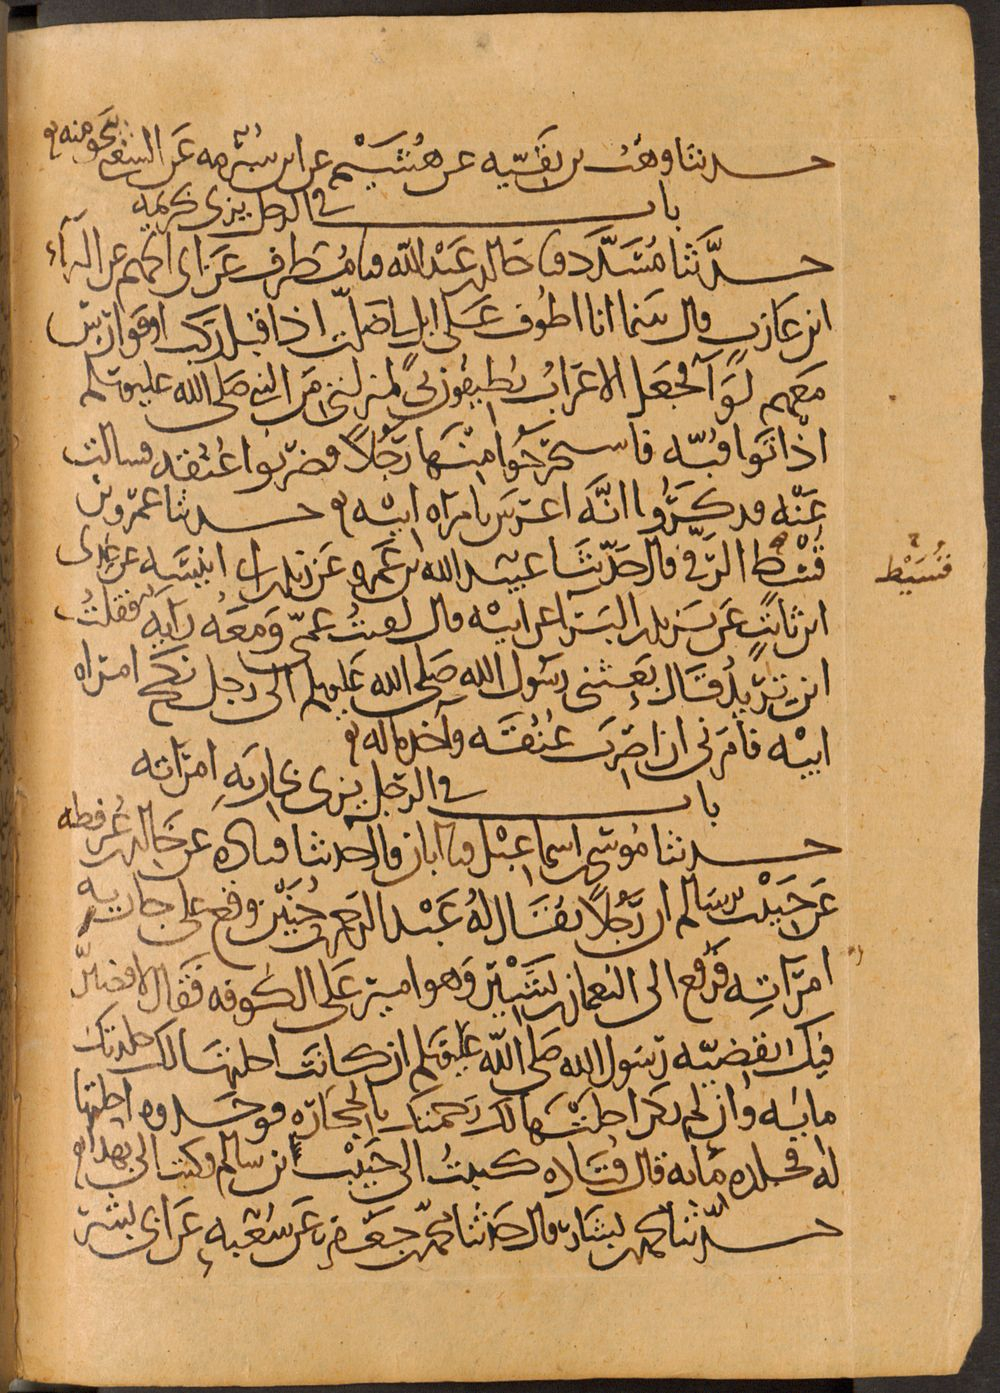 حدثنا وهب بن بقية عن هشيم عن ابن شبرمة عن الشعبي نحو منه
باب في الرجل يزني بحريمه
حدَّثنا مُسَدَّد نا خالد بن عبد الله نا مُطَرِّف عَن ابي الجهم عن البرآء
ابن عازب قال بينما انا اطوف عَلى ابل لي ضلّت اذ اقبل ركب او فوارس
مَعهم لِوَآء فجعل الاعرَابُ يُطيفون بي لمنزلتي مَن النبي صَلى الله عليه وسلم
اذ اتوا قُبّه فاستخرجُوا مِنْهَا رَجُلاً فضربُوا عُنُقه فسالت
عَنْه فذكرُوا انَّه اعرَسَ بامرَاه ابيْه حدثنا عمْرو بن
قُسْط الرَّقي قال حَدّثنَا عبيد الله بن عَمرو عَن زيد بن ابي انيسَه عن عَدِي
قُسَيْط
ابن ثابتٍ عَن يَزيد بن البَرآ عن ابيْه قال لقيتُ عمّي وَمَعَهُ رَايَة فقلتُ
اين تُرِيدُ فقال بَعثني رَسُول الله صَلى الله عَليه وسلم الى رجل نكح امرَاه
ابيْه فامَرني ان اضرب عُنُقَه وآخذ ماله
باب في الرّجل يزني بجاريَهِ امرَاته
حدثنا مُوسَى بن اسماعِيْل نا ابان قال حدثنا قتاده عن خَالِد بن عُرفطه
عَن حَبِيْب بن سَالم ان رَّجُلاً يُقَال لهُ عَبْد الرحمن بن حُنَيْن وقع على جاريه
امرَاتِه فرُفع الى النعمان بن بَشِيْرٍ وَهو امير عَلى الكوفه فَقَال لاقضِيَنّ
فِيك بقضِيّه رَسَول الله صَلى الله عليه وسلم ان كانَت احلتهَا لك جلدتك
مايَه وَان لم تكن احلتْهَا لك رَجمتك بالحجَارَه فوجَدوه احلتهَا
له فجلده مايه قال قتَاده كتبتُ الى حَبِيْب ابن سالم فكتب الي بهذا
حدّثنا محمد بن بشار قال حَدثنا محمّد بن جَعْفرٍ عَن شُعْبه عَن ابي بشر